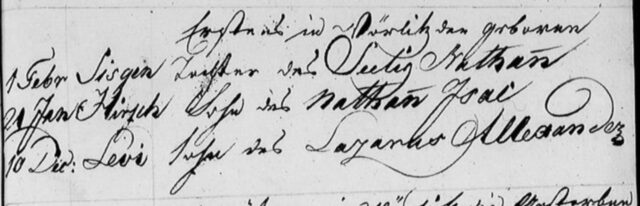 Erstens in Wörlitz den geboren
1 Febr Sisgen Tochter des Selig Nathan̅
21 Jan Hirsch Sohn des Nathan̅ Isac
10 Dec: Levi Sohn des Lazarus Allexander